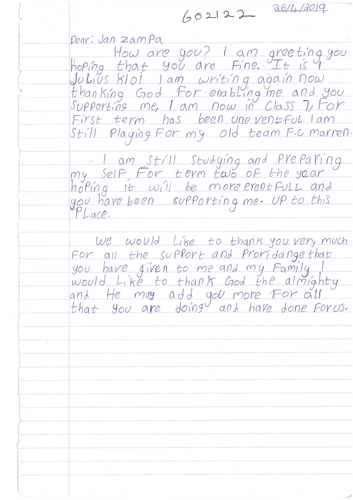 602122
25/4/2019
Dear: Jan zampa
How are you? I am greeting you
hoping that you are Fine. It is I
Julius Kloi I am writing again now
thanking God For enabling me and you
Supporting me, I am now in Class 7, For
First term has been uneventful I am
Still Playing For my old team F.C marren.
- I am Still Studying and Preparing
my Self For term two of the year
hoping it will be more eventFULL and
you have been supporting me. UP to this
PLace.
We would Like to thank you very, much
For all the support and Proridange that
you have given to me and my Family I
would Like to thank God the almighty
and He may add you more For all
that you are doing and have done For us.